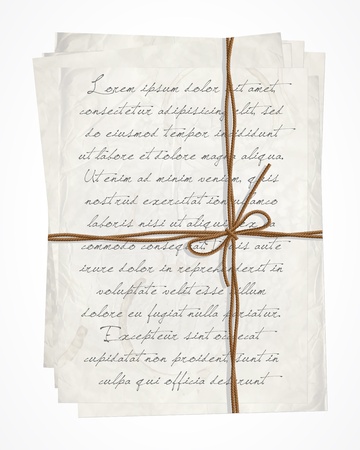 Lorem ipsum dolor sit amet
consectetur adipisicing elit sed
do eiusmod tempor incididunt
ut labore et dolore magna aliqua.
Ut enim ad minim veniam, quis
nostrud exercitation ullamco
laboris nisi ut aliquip ex ea
commodo consequat. Duis aute
irure dolor in reprehenderit in
voluptate velit esse cillum
dolore eu fugiat nulla pariatur.
Excepteur sint occaecat
cupidatat non proident sunt in
culpa qui officia deserunt